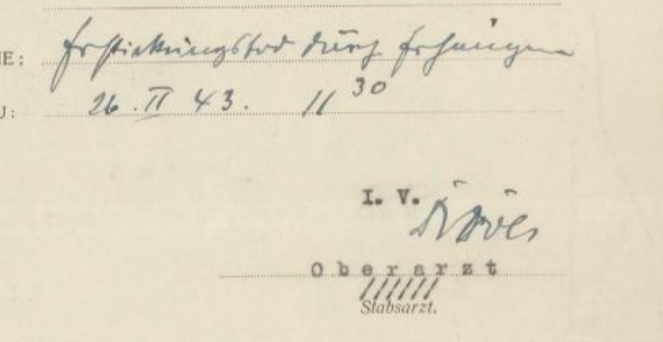 E: Erstickungstod durch Erhängen
U: 26. II 43. 11 30
I. V.
Oberarzt
Stabsarzt.